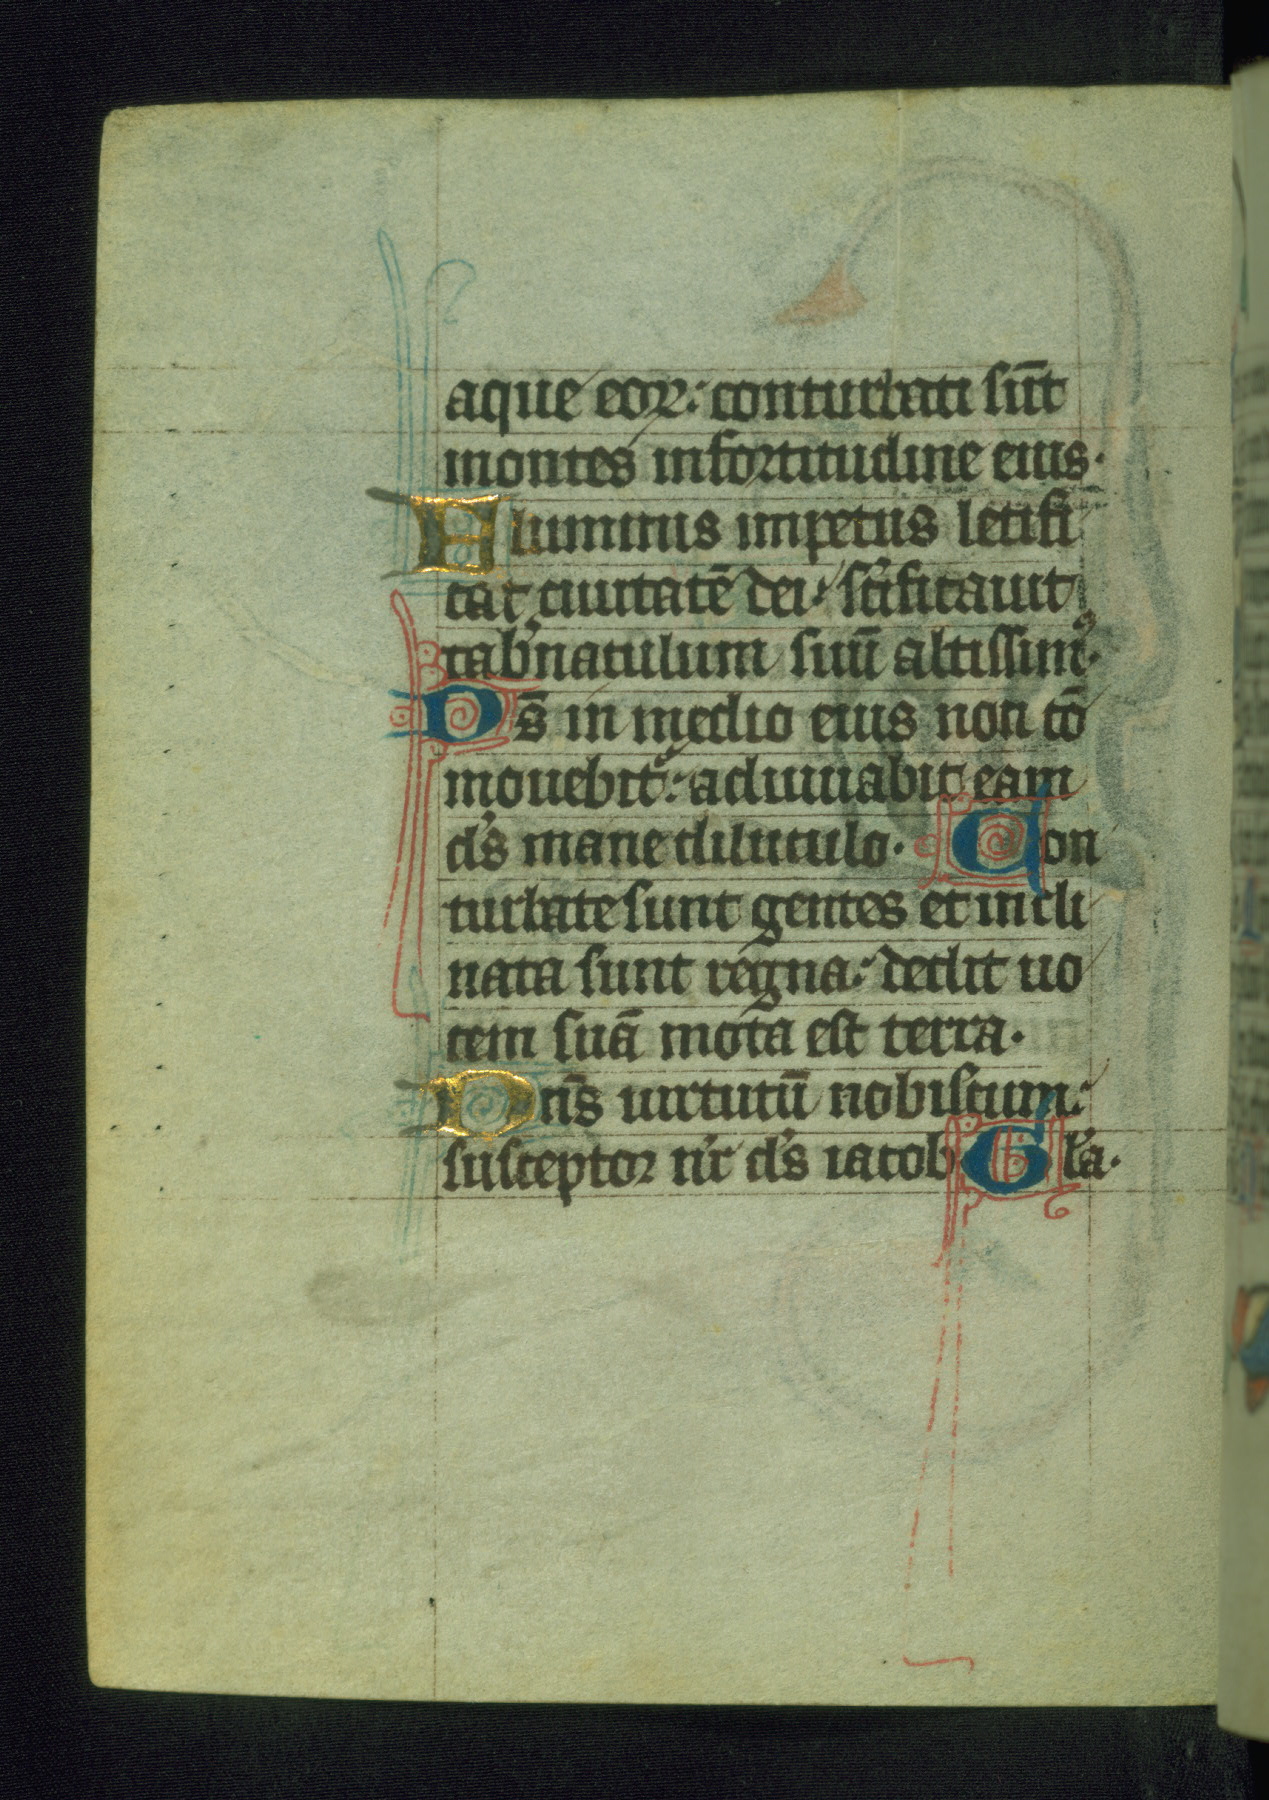 aque eoꝝ: conturbati sūt
montes infortitudine eius.
Fluminis impetus letifi
cat ciuitatē dei: sc̄ificauit
tab'naculum suū altissim9.
Ds̄ in medio eius non cō
mouebit᷑: adiuuabit eam
d's mane diluculo. Con
turbate sunt gentes et incli
nata sunt regna: dedit uo
cem suā mota est terra.
Dn̄s uirtutū nobiscum:
susceptor nr̄ d's iacob Gl'a.